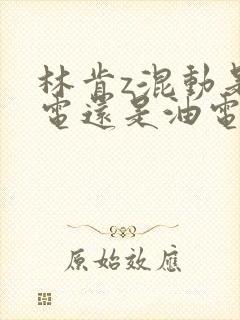 林肯z混動是
電還是油電
原始效應